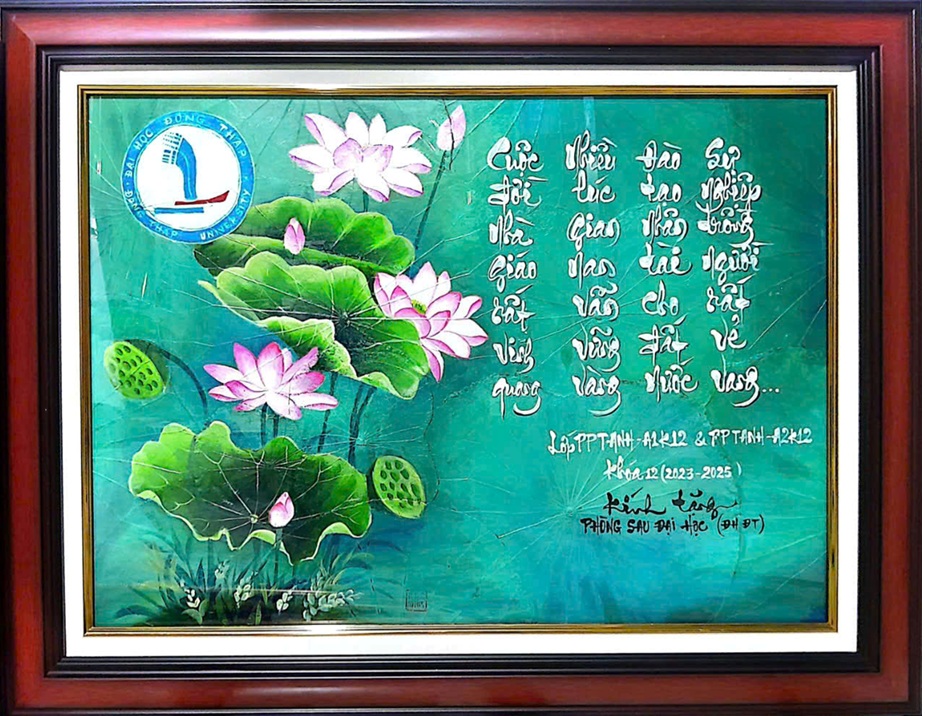 ĐẠI HỌC ĐỒNG THÁP
DONG THAP UNIVERSITY
Cuộc đời Nhà giáo Rất vinh quang
Nhiều lúc Gian Nan vẫn vững vàng
Đào tạo Nhân tài cho đất Nước
Sự Nghiệp trồng Người Rất vẻ vang...
Lớp PPTANH-A1K12 & PPTANH-A2K12
Khóa 12 (2023-2025)
Kính tặng
PHÒNG SAU ĐẠI HỌC (ĐHĐT)